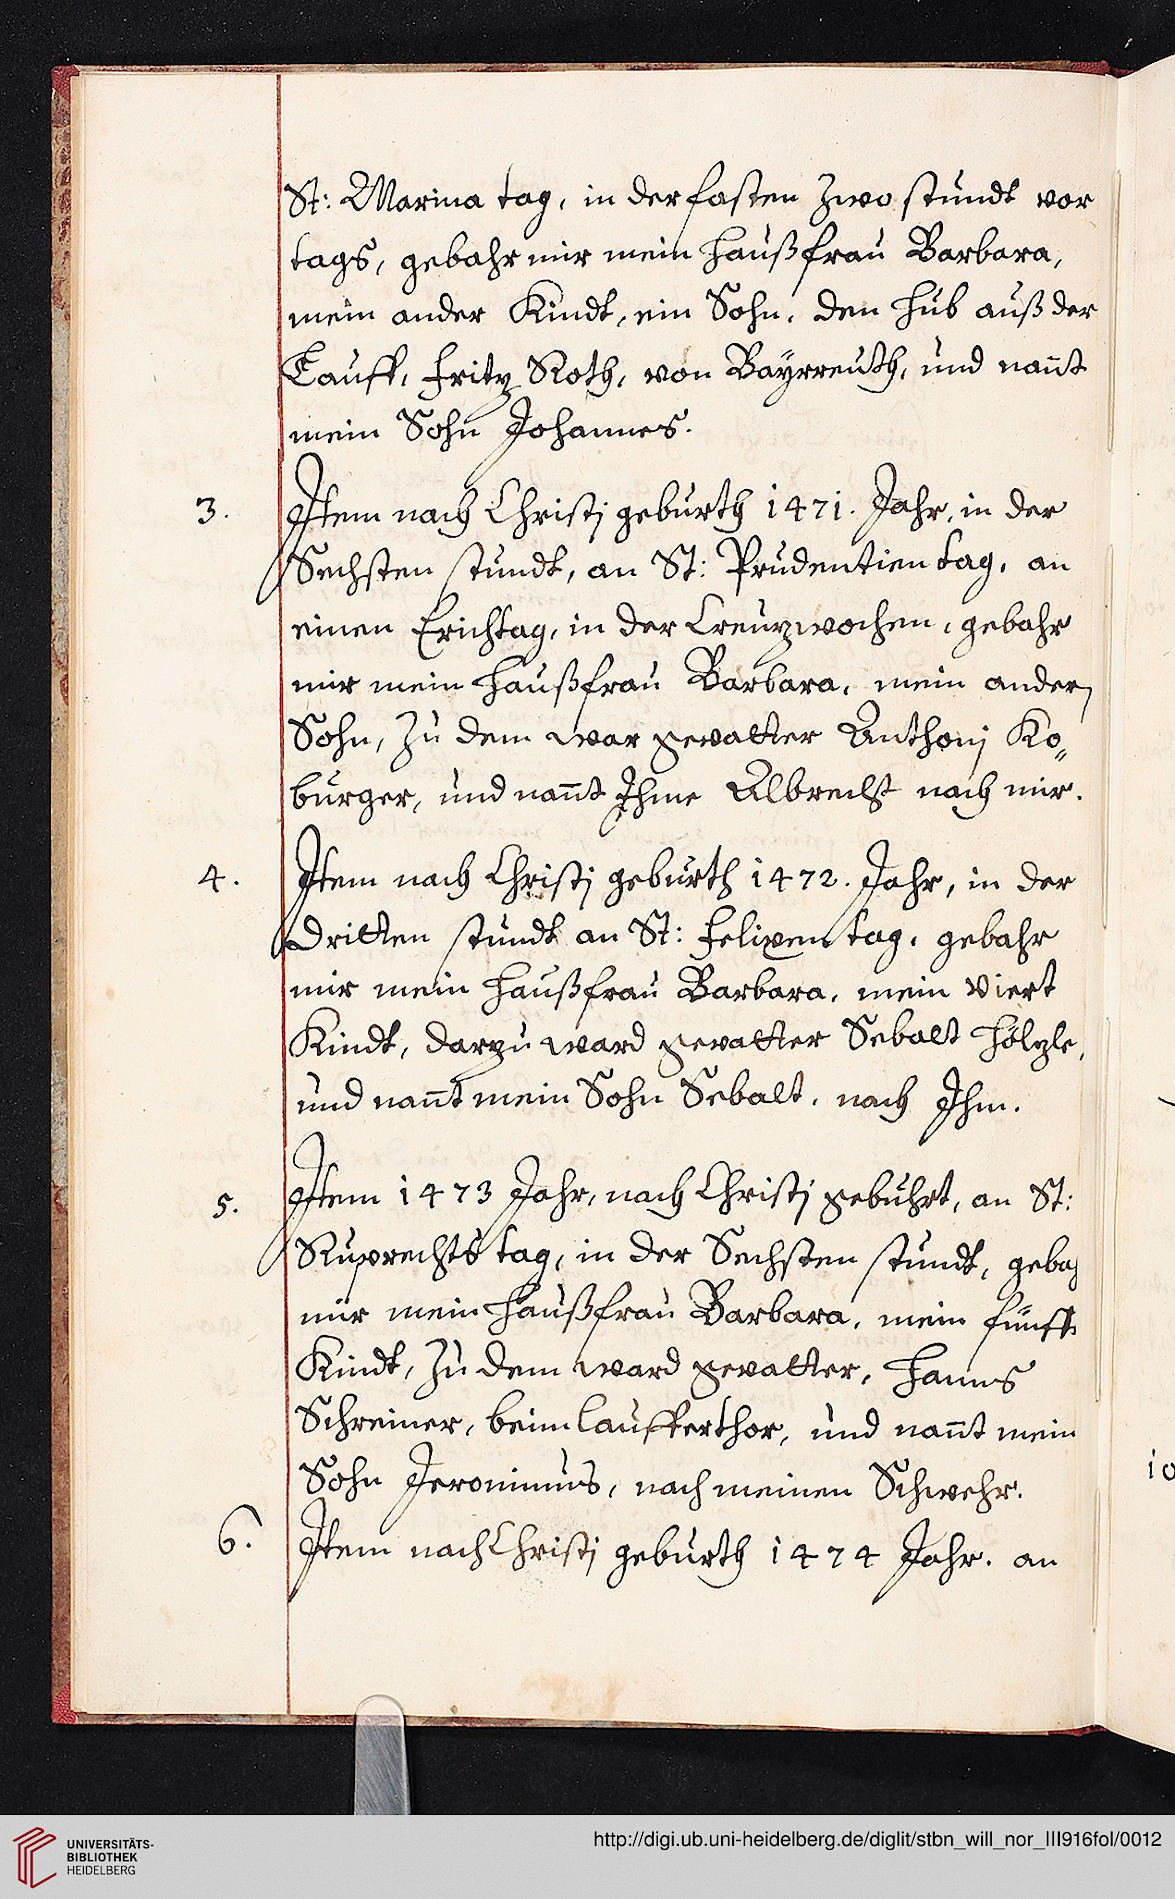 St: Marina tag, in der fasten Zwo stundt vor
tags, gebahr mir mein Haußfrau Barbara,
mein ander Kindt, ein Sohn, den hub auß der
Tauff, Fritz Roth, von Bayrreuth, und nañt
mein Sohn Johannes.
3. Item nach Christj geburth 1471. Jahr, in der
Sechsten stundt, an St: Prudentien tag, an
einen Erichtag, in der Creuzwochen, gebahr
mir mein Haußfrau Barbara, mein andern
Sohn, Zu dem war gevatter Anthonj Ko„
burger, und nañt Ihme Albrecht nach mir.
4. Item nach Christj geburth 1472. Jahr, in der
dritten stundt an St: Felixen tag, gebahr
mir mein Haußfrau Barbara, mein Viert
Kindt, darzu ward gevatter Sebalt Hölzle,
und nañt mein Sohn Sebalt, nach Ihm.
5. Item 1473 Jahr, nach Christj gebuhrt, an St:
Ruprechts tag, in der Sechsten stundt, gebah
mir mein Haußfrau Barbara, mein fünfft
Kindt, Zu dem ward gevatter, Hanns
Schreiner, beim Laufferthor, und nañt mein
Sohn Jeronimus, nach meinen Schwehr.
6. Item nach Christj geburth 1474 Jahr. an
10
UNIVERSITÄTS-
BIBLIOTHEK
HEIDELBERG
http://digi.ub.uni-heidelberg.de/diglit/stbn_will_nor_III916fol/0012